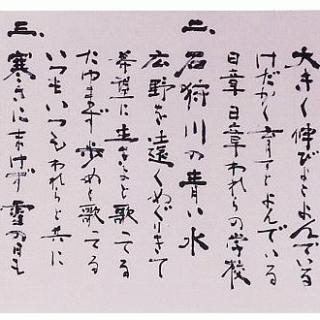 大きく伸びよとよんでいる
けだかく育てとよんでいる
日章日章われらの学校
二、石狩川の青い水
広野を遠くぬぐりきて
希望に生きよと歌ってる
たゆまず歩めと歌ってる
いつもいつもわれらと共に
三、寒さにまけず雪の日も